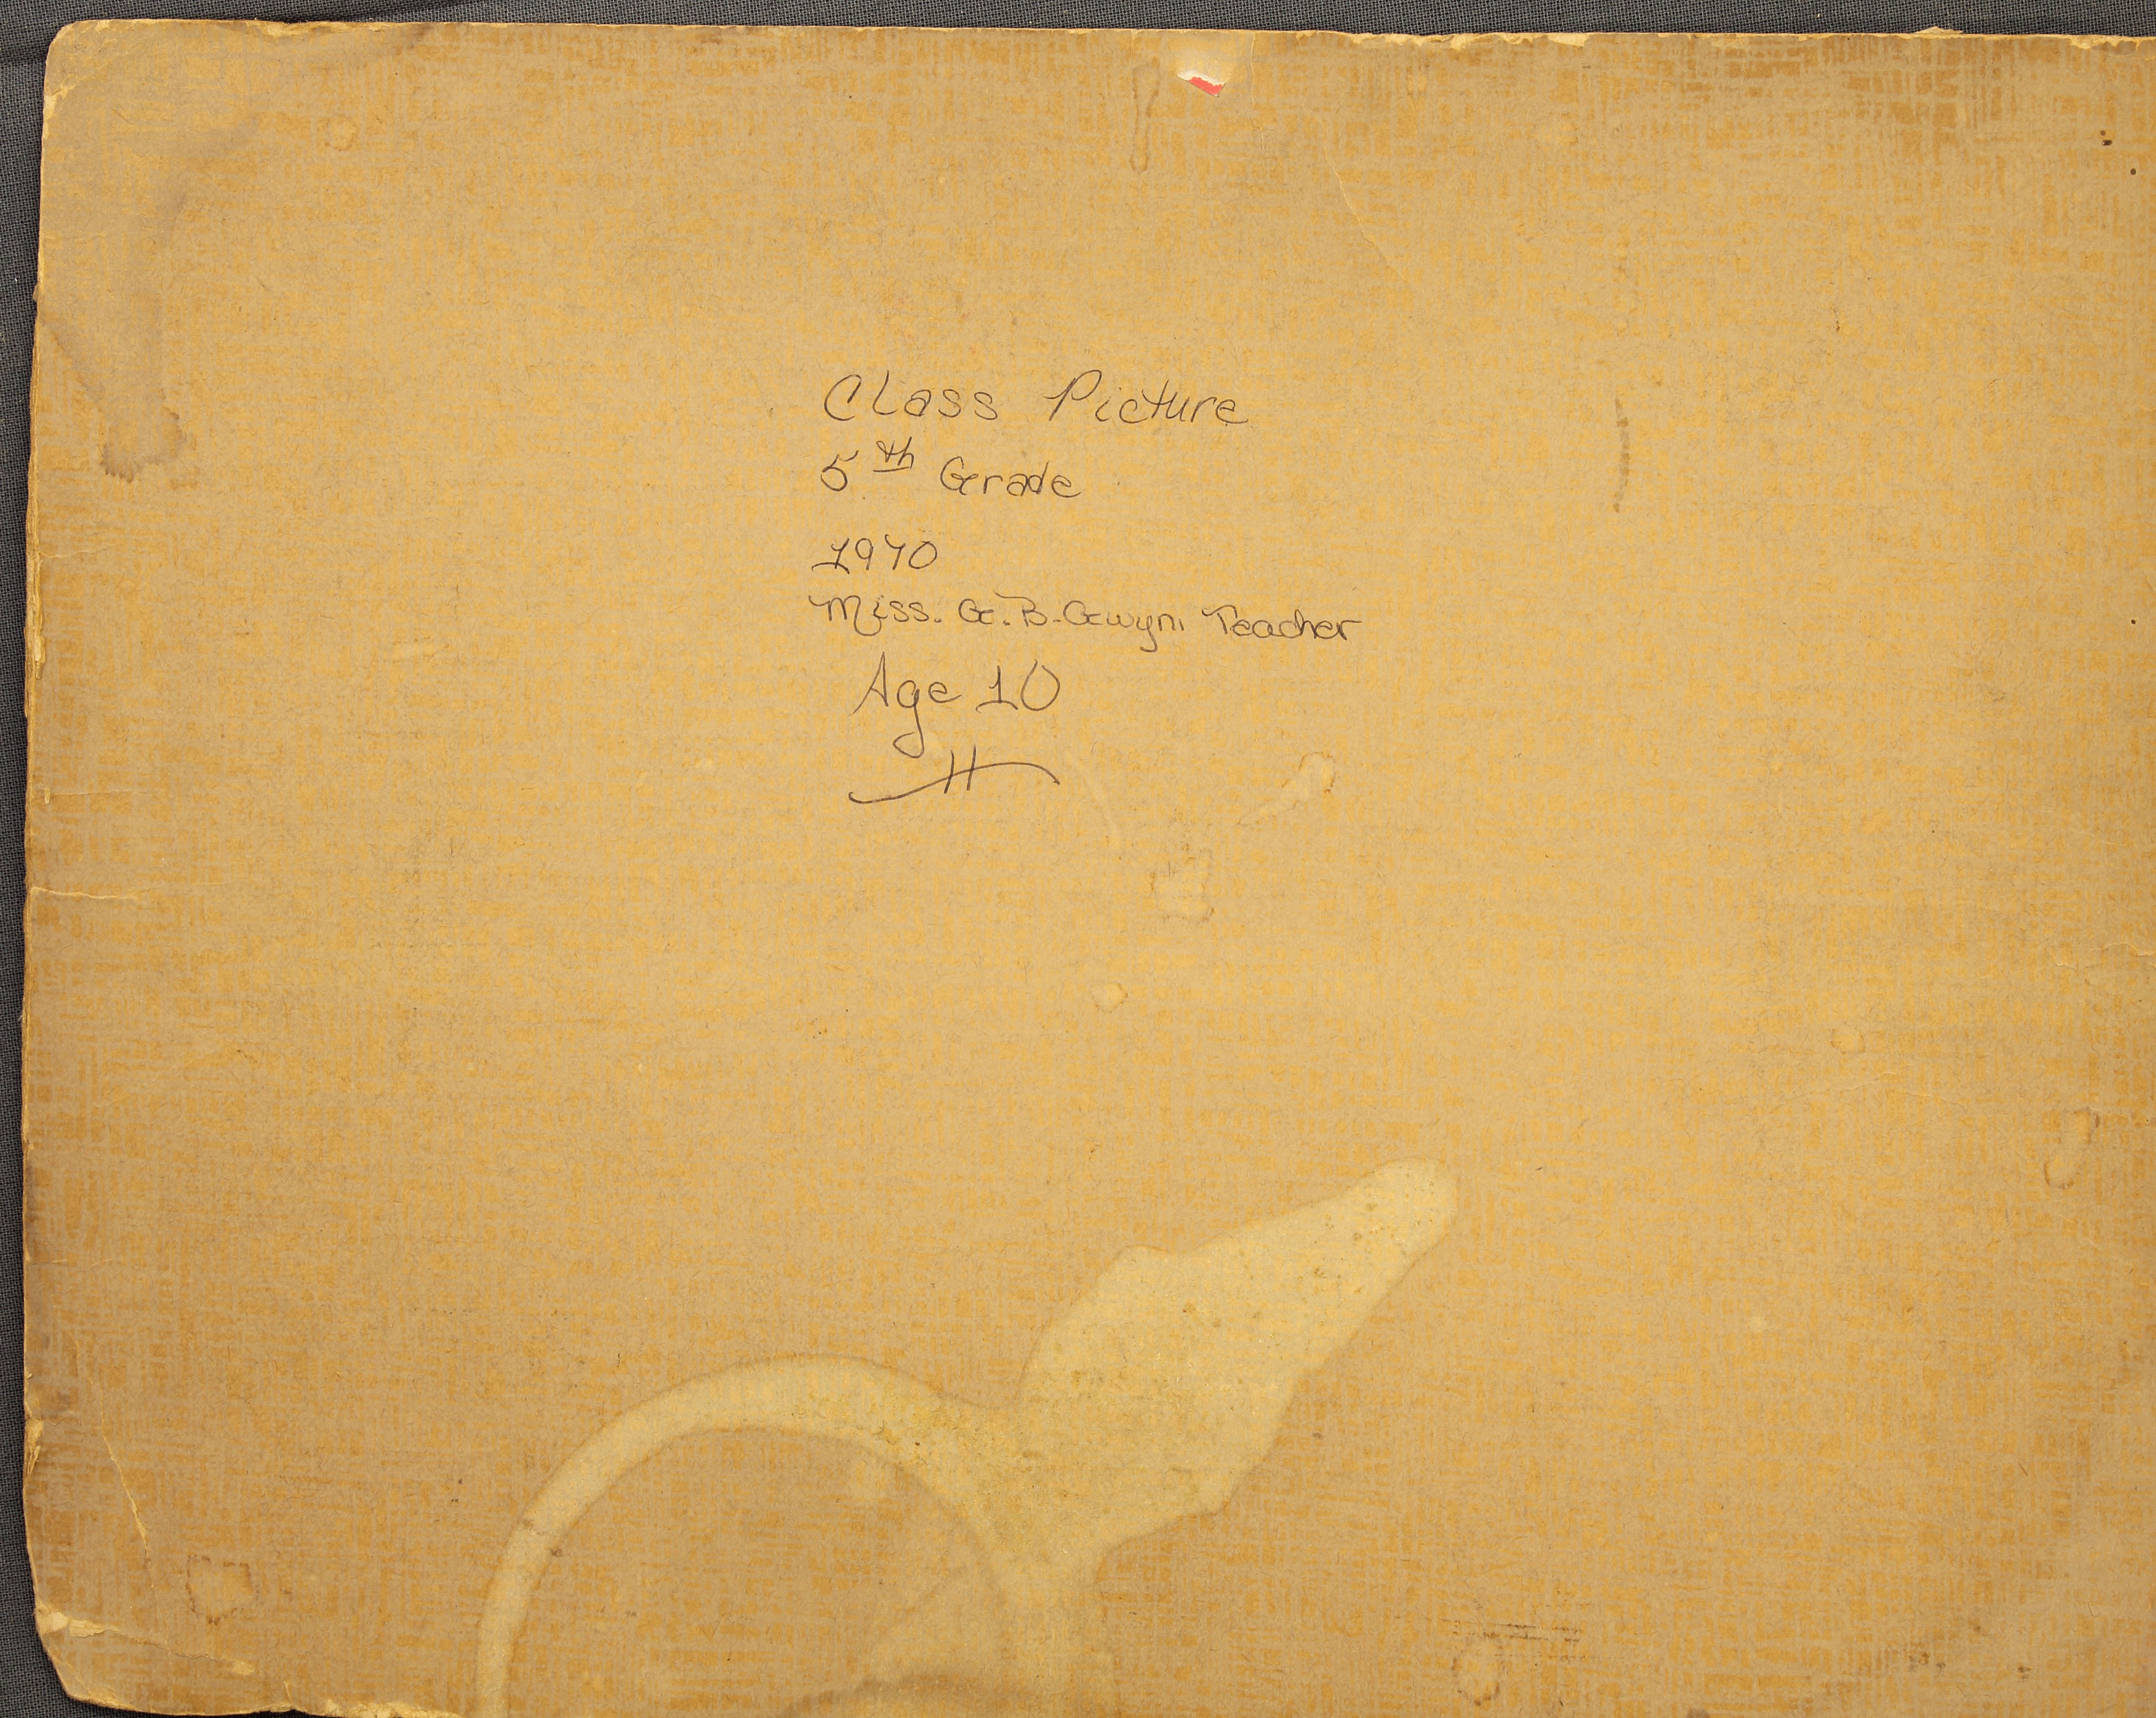 Class Picture
5th Grade
1970
Miss. G. B. Gwyn, Teacher
Age 10